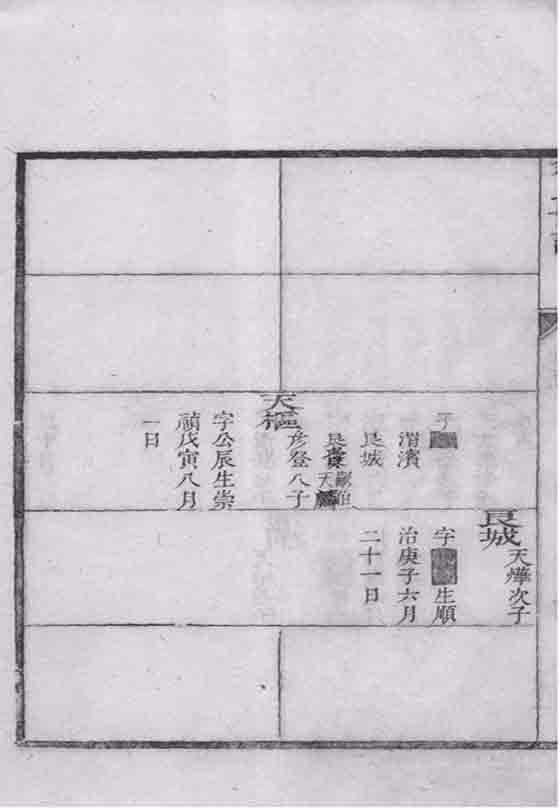 子
渭濱
良城
良貴
天樞
彥登八子
字公辰生崇
禎戊寅八月
一日
良城
天燁次子
字生順
治庚子六月
二十一日